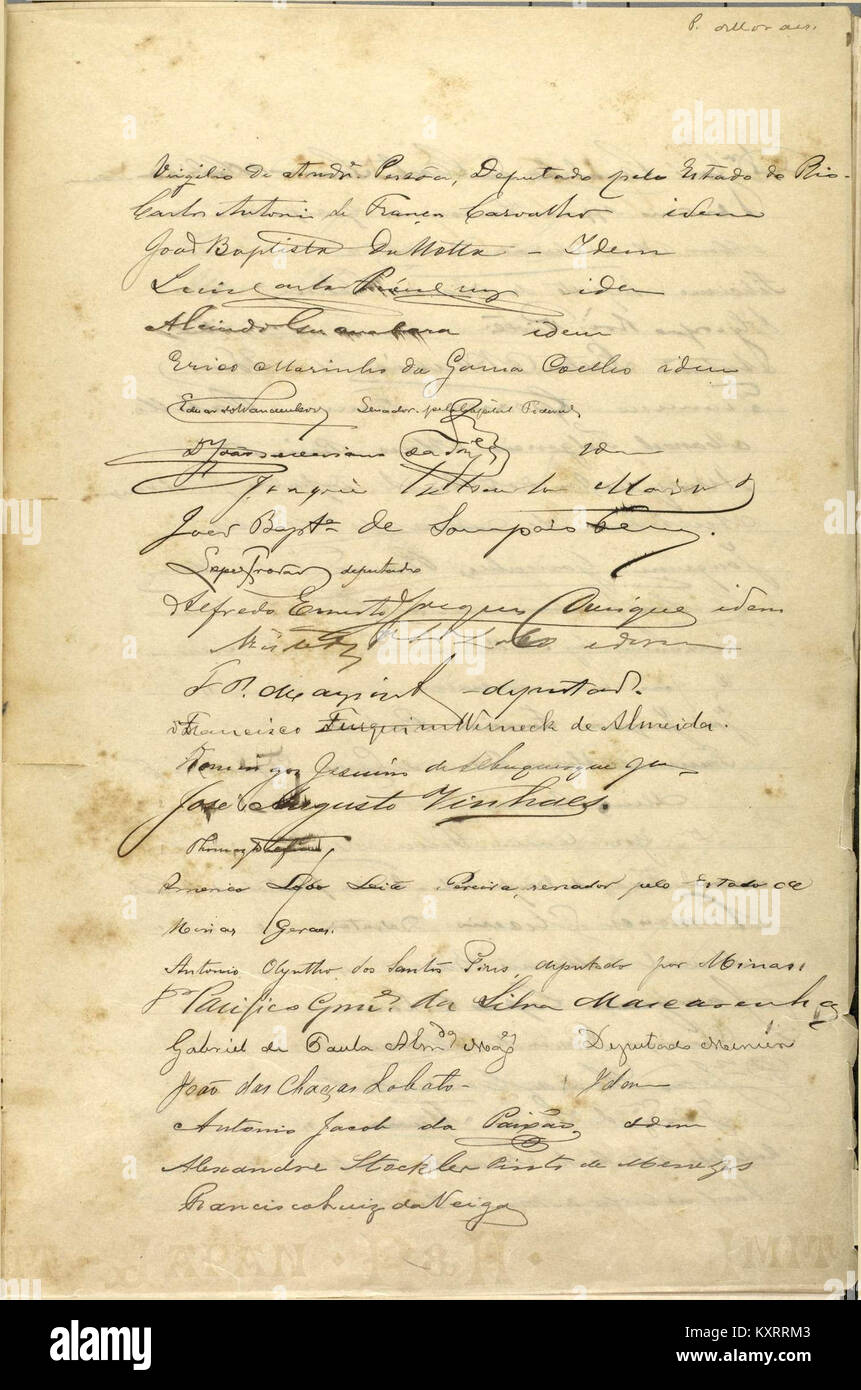 P. de Moraes.
Virgilio de Andr.e Pessôa, Deputado pelo Estado do Rio
Carlos Antonio de França Carvalho idem
João Baptista Da Motta - Idem
Luiz Carlos idem
Alcindo Guanabara idem
Erico Marinho da Gama Coelho idem
Eduardo Wandenkolk Senador pela Capital Federal
Dr João Severiano idem
Joaquim Saldanha Marinho
João Bapt.a de Sampaio Ferraz.
Lopes Trovão deputado
Alfredo Ernesto Jacques Ourique idem
idem
F. P. Mayrink - deputado.
Francisco Furquim Werneck de Almeida.
Domingos Jesuino de Albuquerque
José Augusto Vinhaes.
Thomaz Delfino
Americo Lobo Leite Pereira, senador pelo Estado de
Minas Geraes.
Antonio Olyntho dos Santos Pires, deputado por Minas
Dr Pacifico Gonç.es da Silva Mascarenhas
Gabriel de Paula Alm.da Mag.es Deputado Mineiro
João das Chagas Lobato - Idem
Antonio Jacob da Paixão, idem
Alexandre Stockler Pinto de Menezes
Francisco Luiz da Veiga
alamy
Image ID: KXRRM3
www.alamy.com